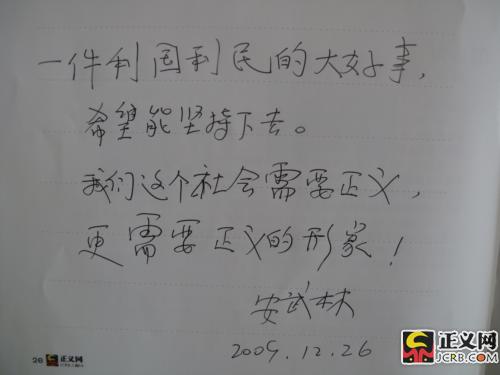 一件利国利民的大好事，
希望能坚持下去。
我们这个社会需要正义，
更需要正义的形象！
安武林
2009.12.26
26 正义网
正义网
JCRB.com